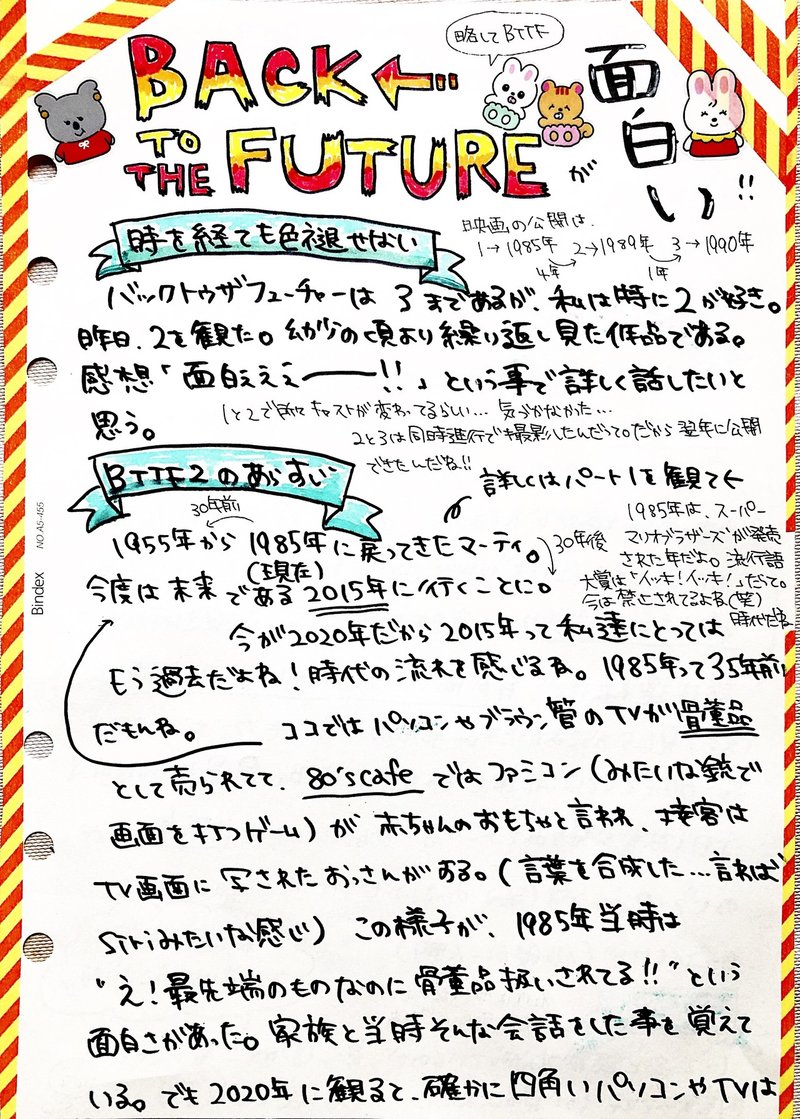 略してBTTF
BACK
TO THE FUTURE が
面白い!!
時を経ても色褪せない
映画の公開は、
1→1985年 2→1989年 3→1990年
4年 1年
バックトゥザフューチャーは3まであるが、私は特に2が好き。
昨日、2を観た。幼少の頃より繰り返し見た作品である。
感想「面白えええー!!」という事で詳しく話したいと
思う。
1と2で所々キャストが変わってるらしい…気づかなかった…
2と3は同時進行で撮影したんだって。だから翌年に公開
できたんだね!!
BTTF2のあらすじ
詳しくはパート1を観て←
30年前
1955年から1985年に戻ってきたマーティ。
(現在)
30年後
今度は未来である2015年に行くことに。
1985年は、スーパー
マリオブラザーズが発売
された年だよ。流行語
大賞は「イッキ!イッキ!」だって。
今は禁止されてるよね(笑)
時代だね
今が2020年だから2015年って私達にとっては
もう過去だよね!時代の流れを感じるね。1985年って35年前
だもんね。
ココではパソコンやブラウン管のTVが骨董品
として売られてて、80'scafeではファミコン(みたいな銃で
画面を打つゲーム)が赤ちゃんのおもちゃと言われ、接客は
TV画面に写されたおっさんがある。(言葉を合成した…言わば
Siriみたいな感じ)この様子が、1985年当時は
"え!最先端のものなのに骨董品扱いされてる!!"という
面白さがあった。家族と当時そんな会話をした事を覚えて
いる。でも2020年に観ると、確かに四角いパソコンやTVは
Bindex NO.A5-455